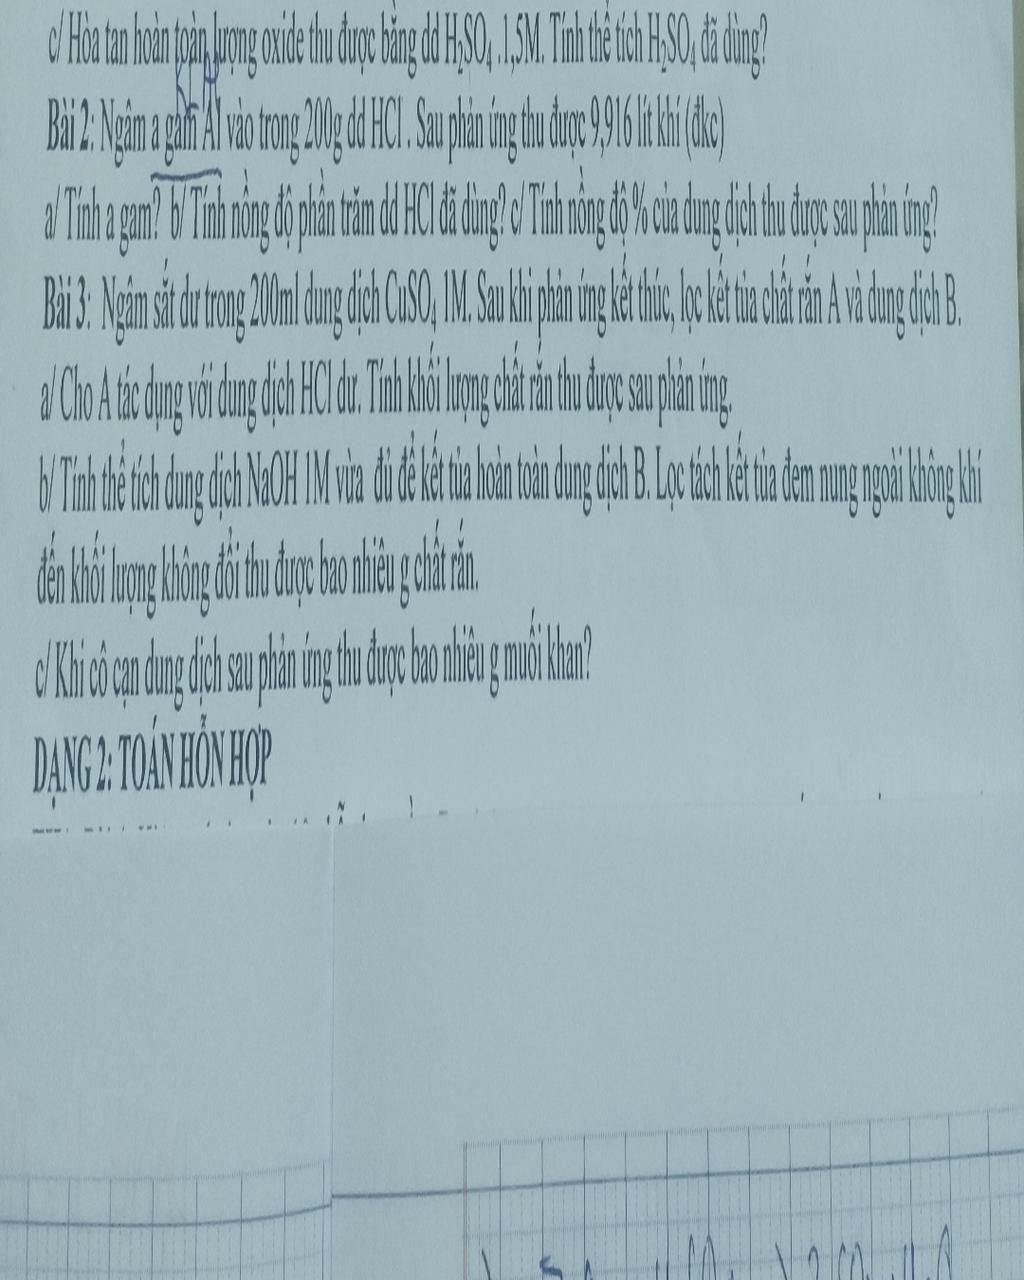 c/ Hòa tan hoàn toàn lượng oxide thu được bằng dd H₂SO₄ .1,5M. Tính thể tích H₂SO₄ đã dùng?
Bài 2: Ngâm a gam Al vào trong 200g dd HCl . Sau phản ứng thu được 9,916 lít khí (đkc)
a/ Tính a gam? b/ Tính nồng độ phần trăm dd HCl đã dùng? c/ Tính nồng độ % của dung dịch thu được sau phản ứng?
Bài 3: Ngâm sắt dư trong 200ml dung dịch CuSO₄ 1M. Sau khi phản ứng kết thúc, lọc kết tủa chất rắn A và dung dịch B.
a/ Cho A tác dụng với dung dịch HCl dư. Tính khối lượng chất rắn thu được sau phản ứng.
b/ Tính thể tích dung dịch NaOH 1M vừa đủ để kết tủa hoàn toàn dung dịch B. Lọc tách kết tủa đem nung ngoài không khí
đến khối lượng không đổi thu được bao nhiêu g chất rắn.
c/ Khi cô cạn dung dịch sau phản ứng thu được bao nhiêu g muối khan?
DẠNG 2: TOÁN HỖN HỢP